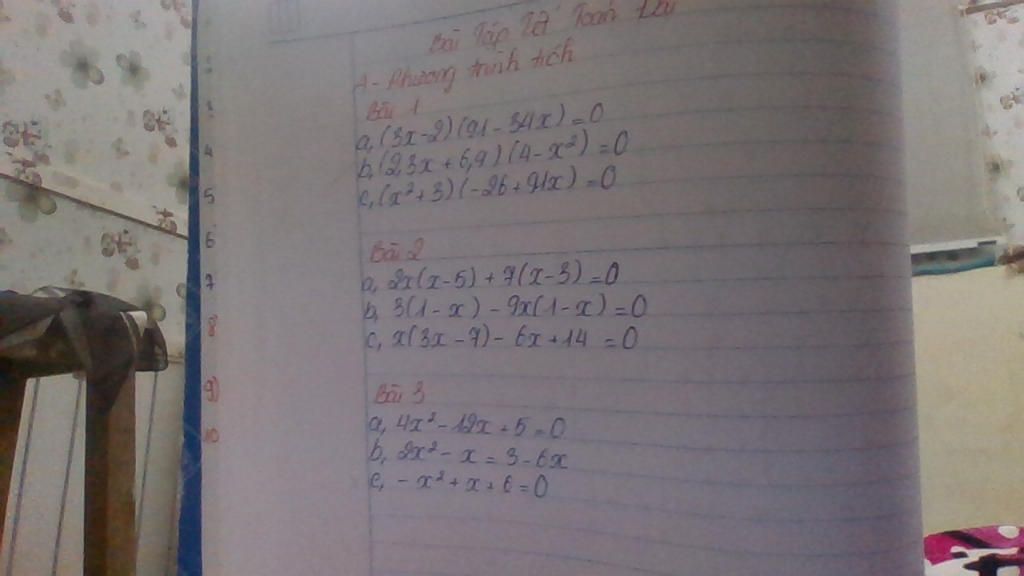 Bài Tập Tết Toán Đại
A - Phương trình tích
Bài 1
a, (3x-2)(21-34x) = 0
b, (2,3x + 6,9)(4-x²) = 0
c, (x²+3)(-26+91x) = 0
Bài 2
a, 2x(x-5) + 7(x-3) = 0
b, 3(1-x) - 9x(1-x) = 0
c, x(3x-7) - 6x+14 = 0
Bài 3
a, 4x² - 12x + 5 = 0
b, 2x² - x = 3 - 6x
c, - x² + x + 6 = 0
4
5
6
7
8
9)
10